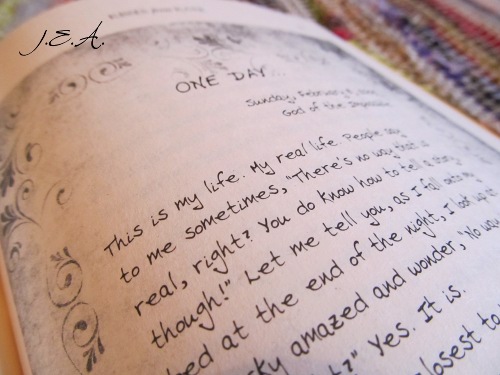 J.E.A.
ONE DAY...
Sunday, February
God of the Impossible
This is my life. My real life. People say
to me sometimes, "There's no way that is
real, right? You do know how to tell a story
though!" Let me tell you, as I fall onto my
bed at the end of the night, I look up at
sky amazed and wonder, "No way
right?" Yes. It is.
closest to